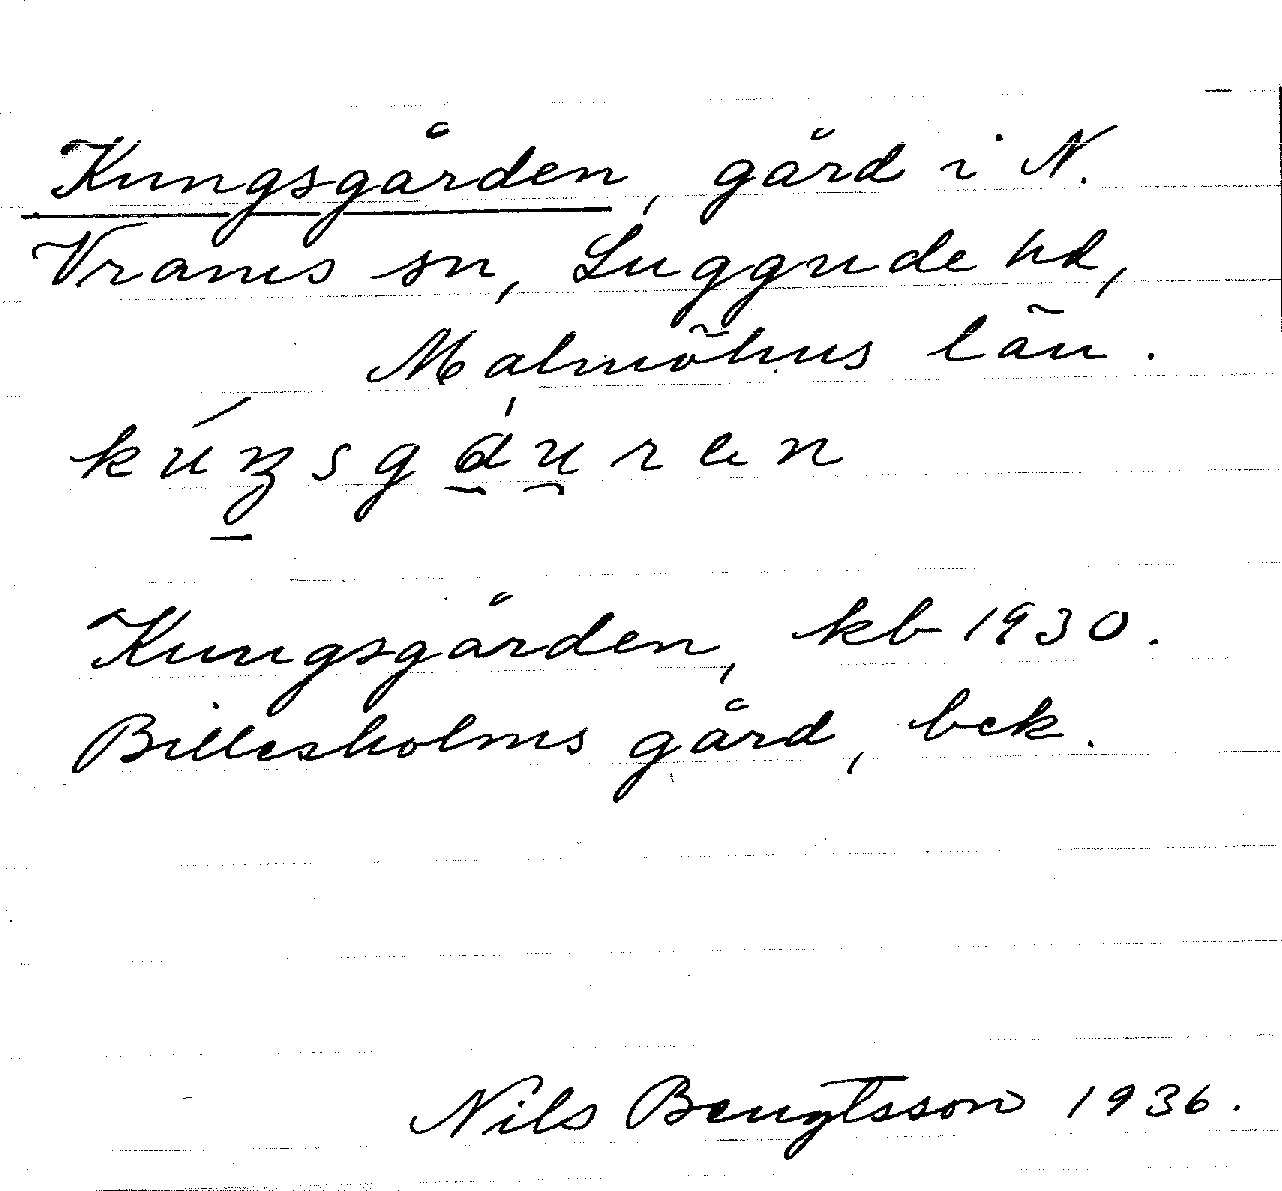 Kungsgården, gård i N.
Vrams sn, Luggude hd,
Malmöhus län.
kúŋsgàu̯ren
Kungsgården, kb 1930.
Billesholms gård, bek.
Nils Bengtsson 1936.